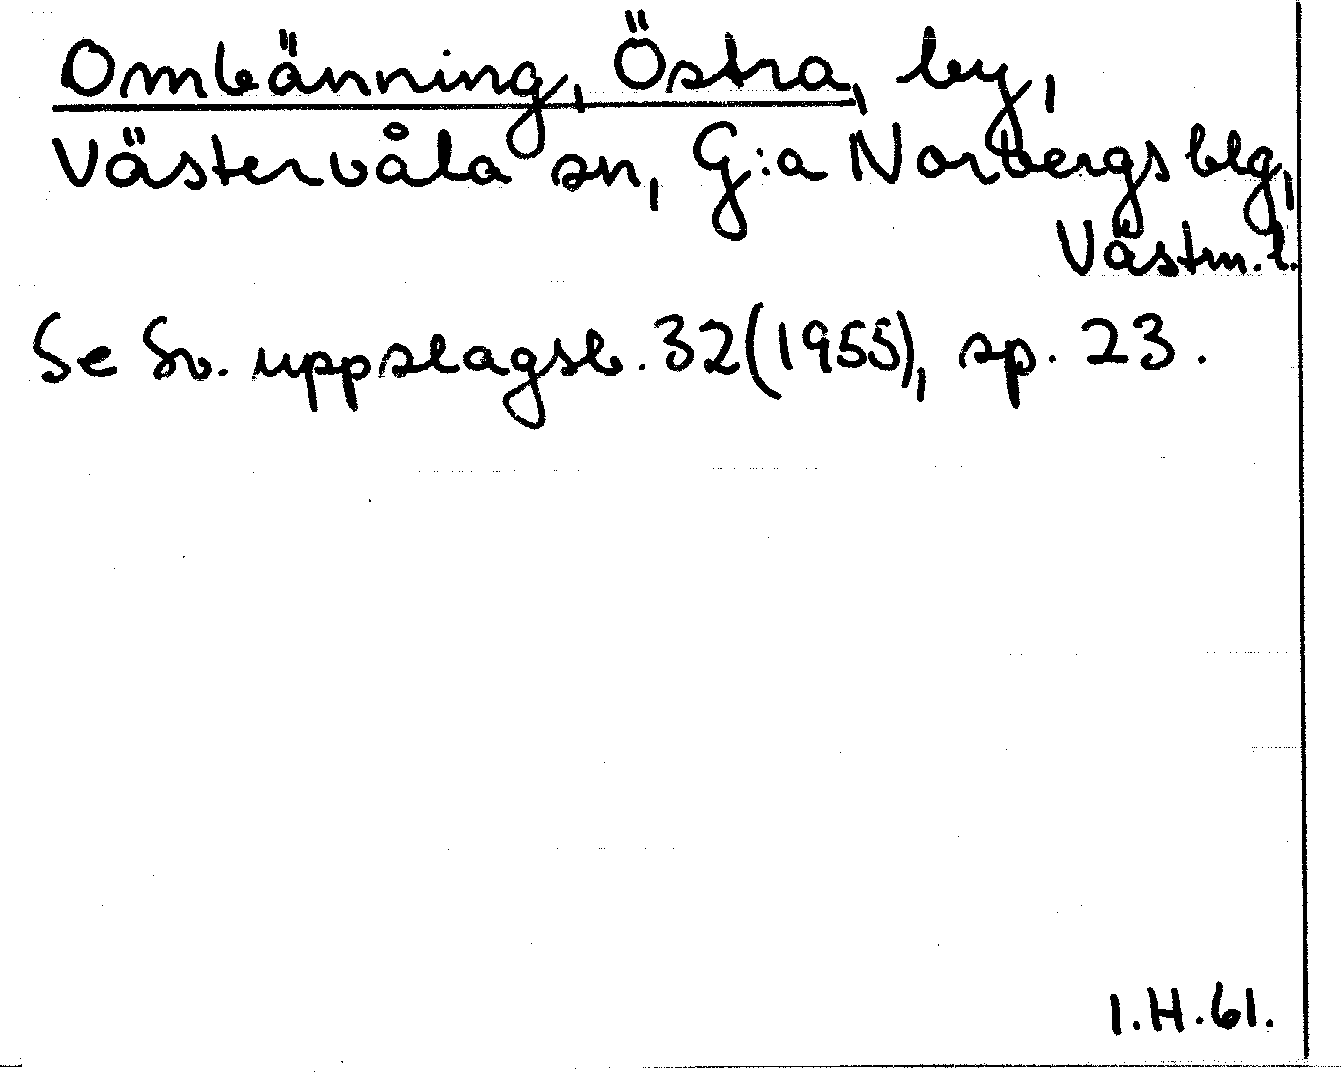 Ombänning, Östra, by,
Västervåla sn, G:a Norbergs blg,
Västm.l.
Se Sv. uppslagsb. 32(1955), sp. 23.
I.H.61.